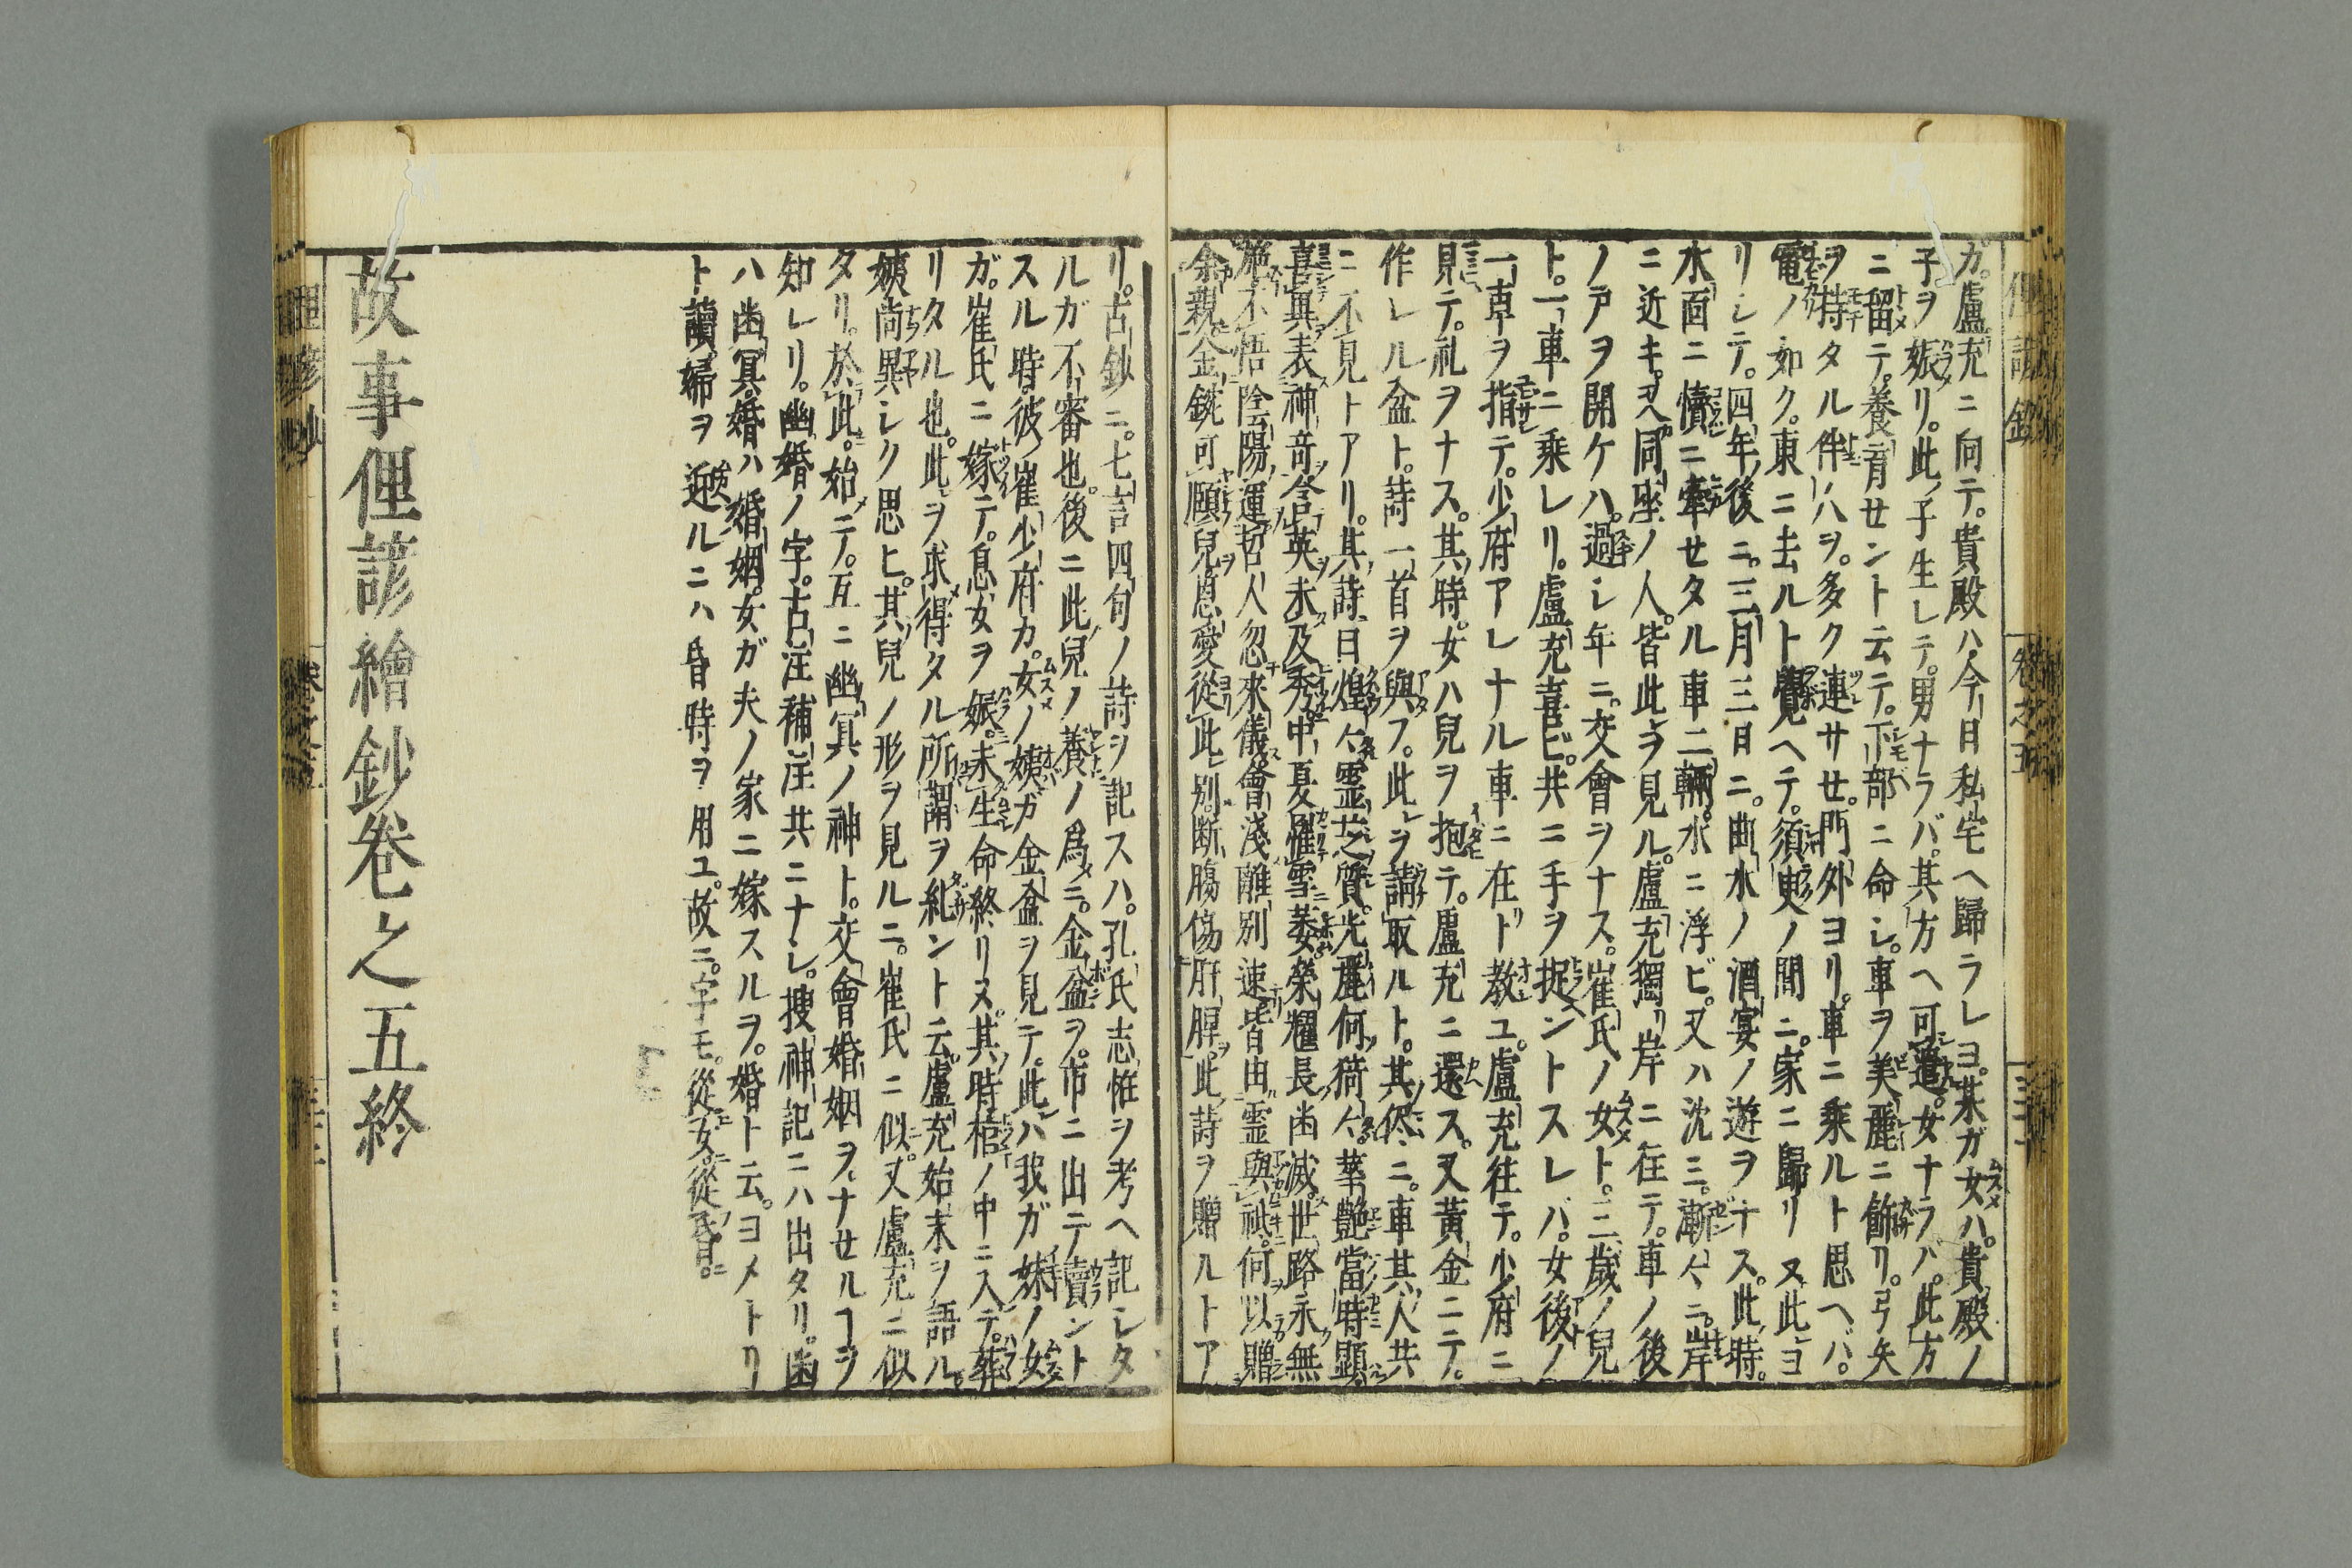 カ。盧充ニ向テ。貴殿ハ今日私宅ヘ歸ラレヨ。某ガ女ハ。貴殿ノ
子ヲ娠リ。此ノ子生レテ。男ナラバ。其方ヘ可遣。女ナラバ。此方
ニ留テ。養育セントテ云テ。下部ニ命シ。車ヲ美麗ニ飾リ。弓矢
ヲ持タル件ハヲ。多ク連サセ。門外ヨリ。車ニ乗ルト思ヘバ。
電ノ如ク。東ニ去ルト覺ヘテ。須臾ノ間ニ。家ニ歸リヌ此ヨ
リシテ。四年後ニ。三月三日ニ。曲水ノ酒宴ノ遊ヲナス。此時。
水面ニ犢ニ牽セタル車二輛。水ニ浮ビ。又ハ沈ミ。漸々ニ。岸
ニ近キ。又同座ノ人。皆此ヲ見ル。盧充獨リ岸ニ往テ。車ノ後
ノ戸ヲ開ケハ。過シ年ニ。交會ヲナス。崔氏ノ女ト。三歳ノ兒
ト。一車ニ乗レリ。盧充喜ビ。共ニ手ヲ捉ントスレバ。女後ノ
一車ヲ指テ。少府アレナル車ニ在ト教ユ。盧充往テ。少府ニ
見テ。礼ヲナス。其時。女ハ兒ヲ抱テ。盧充ニ還ス。又黄金ニテ。
作レル盆ト。詩一首ヲ與フ。此レヲ請取ルト。其侭ニ。車其人共
ニ不見トアリ。其詩曰煌々霊芝質。光麗何猗々。華艶當時顕。
喜異表神奇。含英未及秀。中夏罹霜萎。榮耀長幽滅。世路永無
施。不悟陰陽運。哲人忽來儀。會淺離別速。皆由霊與祇。何以贈
余親。金鋺可頤兒。恩愛從此別。断膓傷肝脾。此詩ヲ贈ルトア
リ。古鈔ニ。七言四句ノ詩ヲ記スハ。孔氏志怪ヲ考ヘ記シタ
ルガ不審也。後ニ此兒ノ養ノ爲ニ。金盆ヲ。市ニ出テ賣ント
スル時。彼ノ崔少府カ。女ノ姨ガ金盆ヲ見テ。此ハ我ガ妹ノ女
ガ。崔氏ニ嫁テ。息女ヲ娠。未生命終リヌ。其時棺ノ中ニ入テ。葬
リタル也。此ヲ求得タル所謂ヲ糺ント云。盧充始末ヲ語ル。
姨尚異シク思ヒ。其兒ノ形ヲ見ルニ。崔氏ニ似。又盧充ニ似
タリ。於此。始ニテ。互ニ幽冥ノ神ト。交會婚姻ヲナセルヿヲ
知レリ。幽婚ノ字。古注補注共ニナシ。捜神記ニハ出タリ。幽
ハ幽冥。婚ハ婚姻。女ガ夫ノ家ニ嫁スルヲ。婚ト云。ヨメトリ
ト讀。婦ヲ迎ルニハ昏時ヲ用ユ。故ニ。字モ。從女。從昏。
故事俚諺繪鈔卷之五終